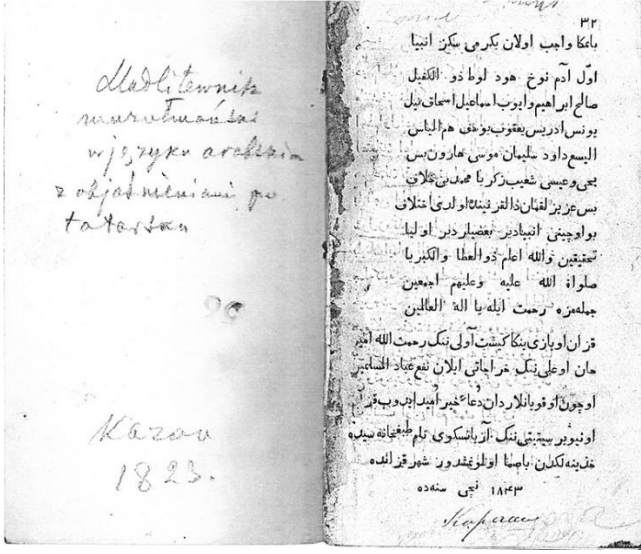 Modlitewnik
muzułmański
w języku arabskim
z objaśnieniami po
tatarsku
96
Kazan
1823.
٣٢
بلمكا واجب اولان يكرمى سكز انبيا
اوّل آدم نوح هود لوط ذو الكفيل
صالح ابراهيم وايوب اسماعيل اسحاق نيل
يونس ادريس يعقوب يوسف هم الياس
اليسع داود سليمان موسى هارون بس
يحى وعيسى شعيب زكريا محمد بى خلاف
بس عزير لقمان ذالقرنينده اولدى اختلاف
بو اوچينى انبيادير بعضيلر دير اوليا
تحقيقين والله اعلم ذو العطا والكبريا
صلواة الله عليه وعليهم اجمعين
جمله مزه رحمت ايله يا الة العالمين
قزان اويازى ينكا كيشت آولى ننك رحمت الله امير
خان اوغلى ننك خراجاتى ايلان نفع عباد المسلمين
اوچون اوقوبانلاردان دُعاءِ خير اُميد ايدوب قزان
اونيويرسيتيتى ننك آزياتسكوى نام طبغخانه سيده
خذينه لكدن باصما اولونمشدور شهر قزانده
١٨٤٣ نچى سنه ده